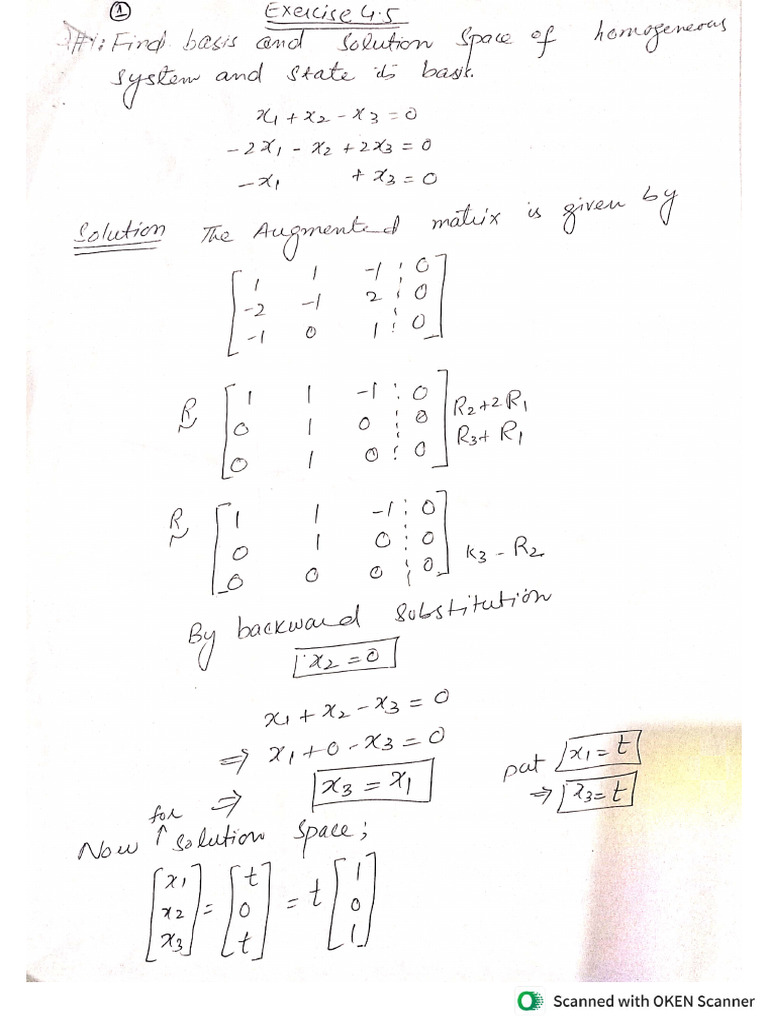 ①
Exercise 4.5
#1: Find basis and solution space of homogeneous
system and state its basis.
x1 + x2 - x3 = 0
-2x1 - x2 + 2x3 = 0
-x1 + x3 = 0
Solution The Augmented matrix is given by
[ 1 1 -1 ⋮ 0 ]
[ -2 -1 2 ⋮ 0 ]
[ -1 0 1 ⋮ 0 ]
R ~ [ 1 1 -1 ⋮ 0 ]
[ 0 1 0 ⋮ 0 ] R2+2R1
[ 0 1 0 ⋮ 0 ] R3+ R1
R ~ [ 1 1 -1 ⋮ 0 ]
[ 0 1 0 ⋮ 0 ]
[ 0 0 0 ⋮ 0 ] R3 - R2
By backward substitution
x2 = 0
x1 + x2 - x3 = 0
⇒ x1 + 0 - x3 = 0
⇒ x3 = x1
put x1 = t
⇒ x3 = t
Now for solution space;
[ x1 ] = [ t ] = t [ 1 ]
[ x2 ] [ 0 ] [ 0 ]
[ x3 ] [ t ] [ 1 ]
Scanned with OKEN Scanner